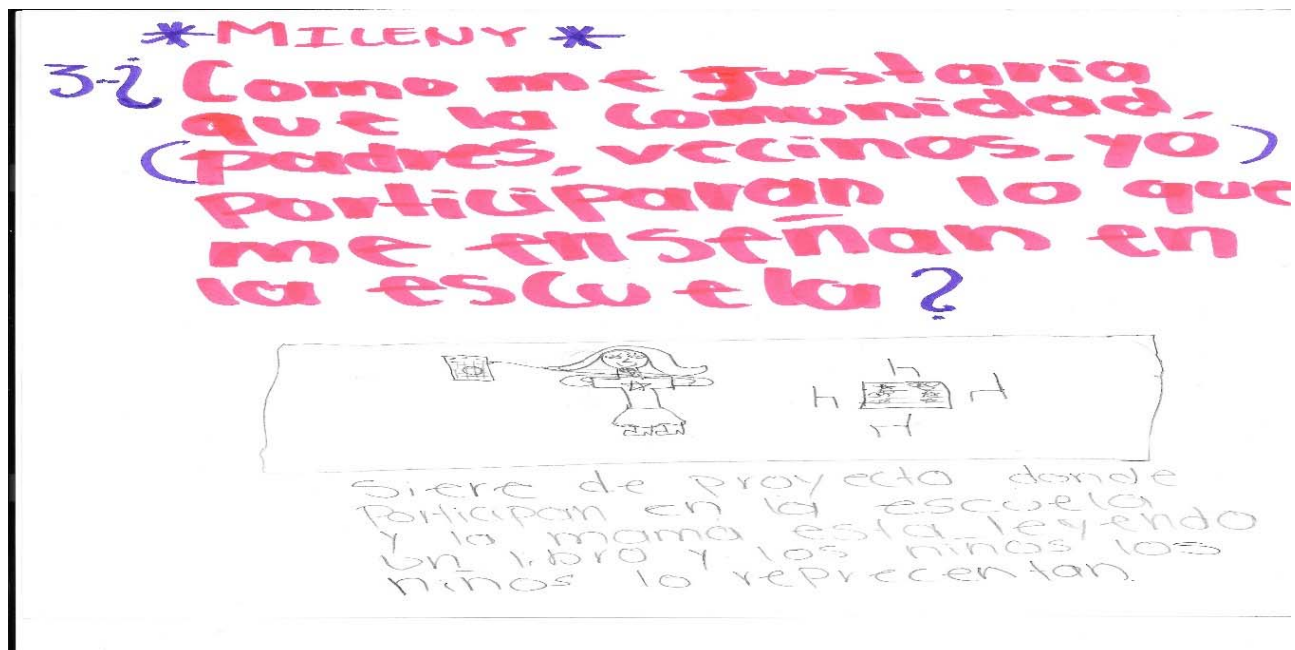 * MILENY *
3-¿ Como me gustaria
que la comunidad,
(padres, vecinos. yo)
Participaran lo que
me enseñan en
la escuela?
siere de proyecto donde
Participan en la escuela
y la mama esta leyendo
un libro y los niños los
niños lo reprecentan.